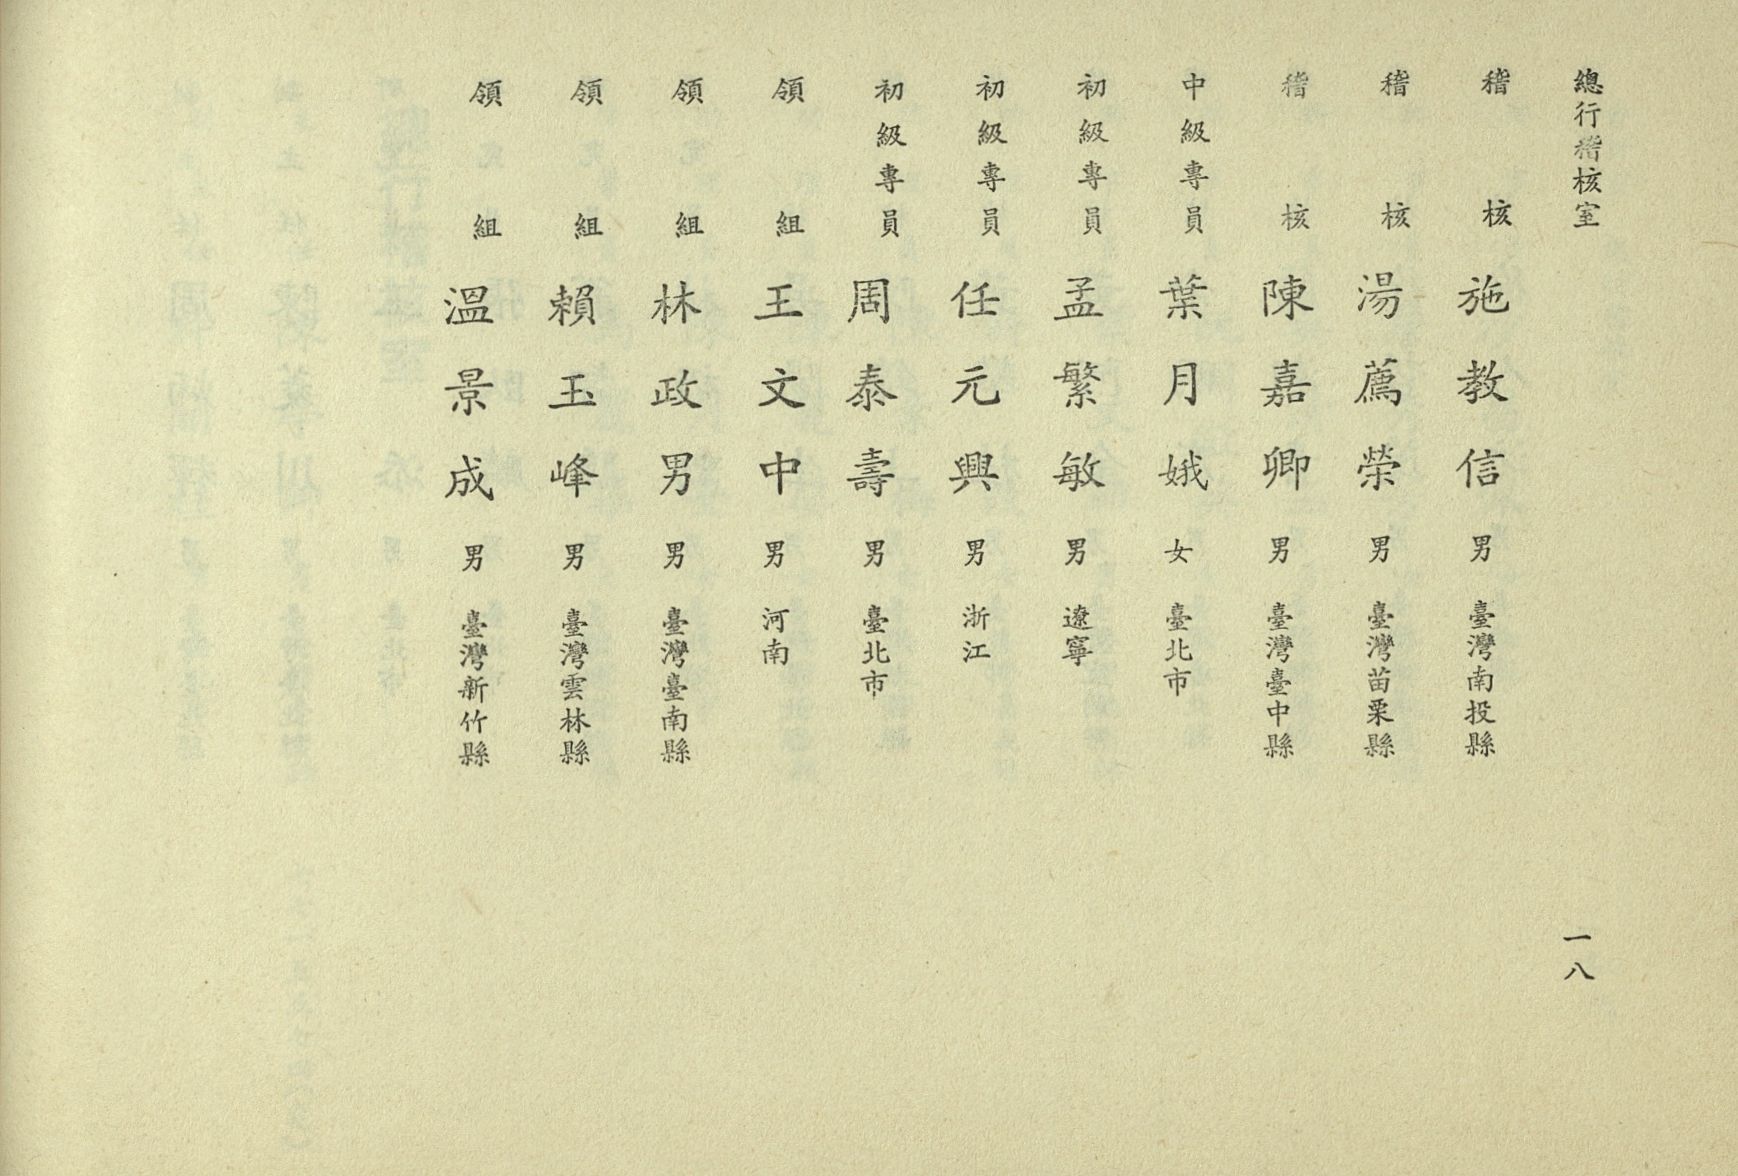 總行稽核室
一八
稽核 施教信 男 臺灣南投縣
稽核 湯薦榮 男 臺灣苗栗縣
稽核 陳嘉卿 男 臺灣臺中縣
中級專員 葉月娥 女 臺北市
初級專員 孟繁敏 男 遼寧
初級專員 任元興 男 浙江
初級專員 周泰壽 男 臺北市
領組 王文中 男 河南
領組 林政男 男 臺灣臺南縣
領組 賴玉峰 男 臺灣雲林縣
領組 溫景成 男 臺灣新竹縣